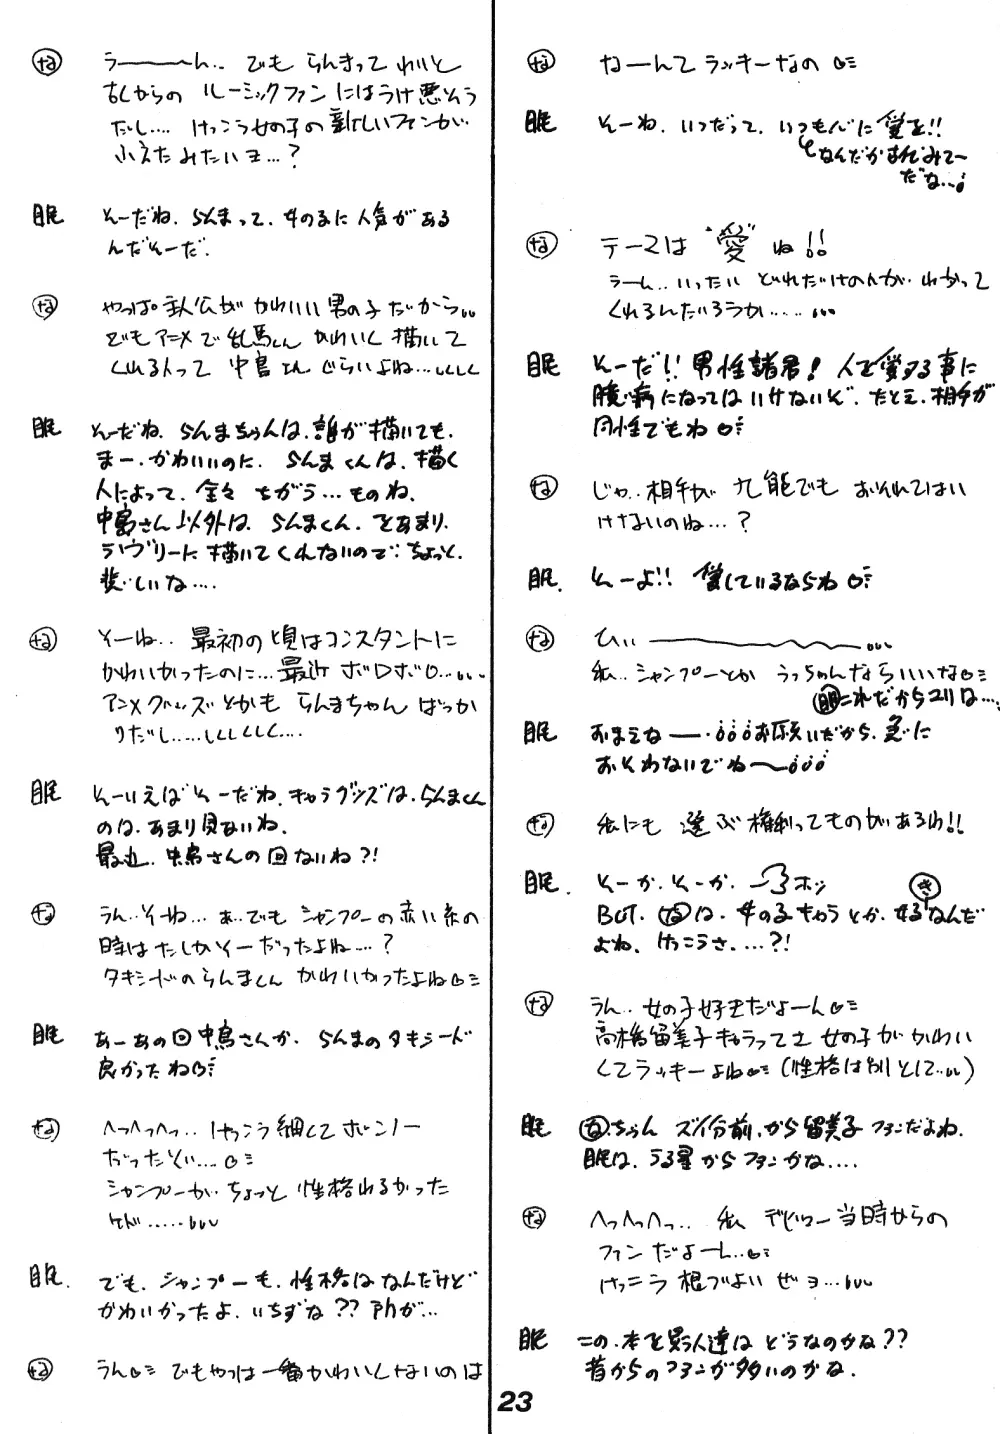 な うーーーん… でも らんまって わりと
古くからの ルーミックファン にはうけ悪そう
だし…. けっこう女の子の新しいファンが
ふえた みたいヨ…?
眠 そーだね. らんまって. 女の子に人気がある
んだそーだ.
な やっぱ主人公が かわいい 男の子だから…
でもアニメで乱馬くん かわいく描いて
くれる人って 中島さんぐらいよね…しくしく
眠 そーだね. らんまちゃんは. 誰が描いても.
まー.かわいいのに. らんまくんは. 描く
人によって. 全々 ちがう…ものね.
中島さん以外は. らんまくん. とあまり.
ラヴリーに描いてくれないので ちょっと.
悲しいな….
な そーね.. 最初の頃はコンスタントに
かわいかったのに…最近 ボロボロ…
アニメグッズとかも らんまちゃん ばっか
りだし…..しくしくしく….
眠 そーいえば そーだね. キャラグッズは. らんまくん
のは. あまり見ないね.
最近. 中島さんの回ないね?!
な うん.. そーね… あ.. でも シャンプーの赤い糸の
時は たしか そーだったよね…?
タキシードのらんまくん かわいかったよね♡
眠 あーあの回中島さんか. らんまのタキシード
良かったね♡
な へっへっへっ.. けっこう細くて ボンノー
だったぞい…♡
シャンプーが ちょっと 性格わるかった
ケド…..
眠. でも. シャンプーも. 性格はなんだけど
かわいかったよ. いちずな??所が…
な うん♡ でもやっぱ一番かわいくないのは
な なーんてラッキーなの♡
眠 そーね. いつだって. いつも心に愛を!!
なんだかまんがみてー
だな…
な テーマは “愛” ね!!
うーん.. いったい どれだけの人が わかって
くれるんだろうか…..
眠 そーだ!! 男性諸君! 人を愛する事に
臆病になってはいけないぞ. たとえ. 相手が
同性でもね♡
な じゃ.. 相手が 九能でも おそれてはい
けないのね…?
眠. そーよ!! 愛しているならね♡
な ひぃーーー…
私.. シャンプーとか うっちゃんならいいな♡
(眠これだからユリは…)
眠 おまえなー.お願いだから. 急に
おそわないでね〜
な 私にも 選ぶ権利ってものがあるわ!!
眠. そーか.そーか. ホッ
BUT. なは. 女の子キャラとか. 好きなんだ
よね. けっこうさ.…?!
な うん.. 女の子好きだよーん♡
高橋留美子キャラってさ 女の子が かわい
くてラッキーよね♡(性格は別として…)
眠 なちゃん ズイ分前.から留美子ファンだよね.
眠は. うる星からファンかな….
な へっへっへっ.. 私 デビュー当時からの
ファン だよーん..♡
けっこう 根づよい ぜョ…
眠 この.本を買う人達は どうなのかな??
昔からのファンが多いのかな.
23